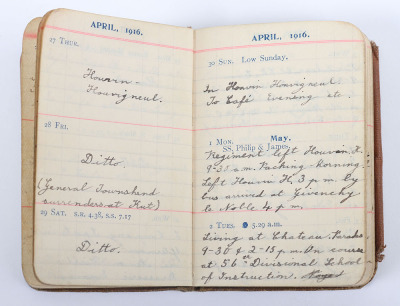 APRIL, 1916.
27 THUR.
Houvin-
Houvigneul.
28 FRI.
Ditto.
(General Townshend
surrenders at Kut)
29 SAT. s.r. 4.38, s.s. 7.17
Ditto.
APRIL, 1916.
30 SUN. Low Sunday.
In Houvin Houvigneul.
To Café evening etc.
May.
1 MON. SS. Philip & James.
Regiment left Houvin H.
9-30 a.m. Packing morning.
Left Houvin H. 3 p.m. by
bus arrived at Givenchy
le Noble 4 p.m.
2 TUES. 5.29 a.m.
Living at Chateau. Parades
9-30 & 2-15 p.m. On course
at 56th Divisional School
of Instruction.